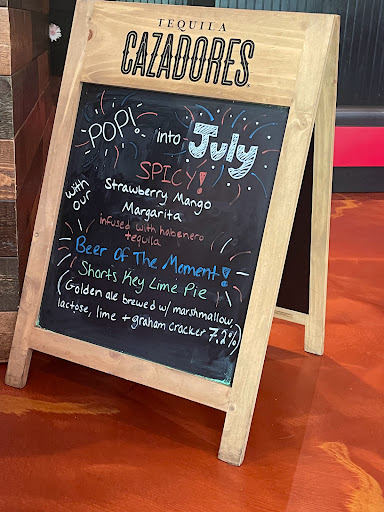 TEQUILA
CAZADORES
POP! into July
with our
SPICY!
Strawberry Mango
Margarita
infused with habenero
tequila
Beer Of The Moment!
Shorts Key Lime Pie
(Golden ale brewed w/ marshmallow,
lactose, lime + graham cracker 7.2%)